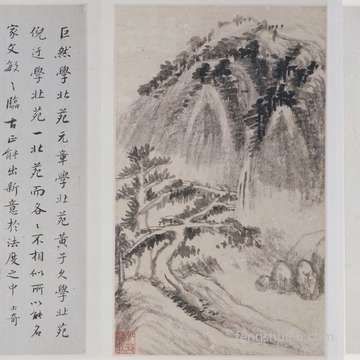 巨然學北苑元章學北苑黃子久學北苑
倪迂學北苑一北苑而各〻不相似所以能名
家文敏〻臨古正能出新意於法度之中士奇